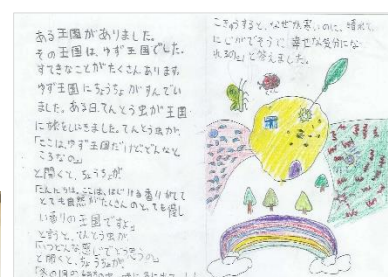 ある王国がありました。
その王国は、ゆず王国でした。
すてきなことがたくさんあります。
ゆず王国にちょうちょがすんでい
ました。ある日、てんとう虫が王国
に旅をしにきました。てんとう虫が、
「ここは、ゆず王国だけどどんなと
ころなの。」
と聞くと、ちょうちょが
ここは、はじける香りがして
とても自然がたくさんのとても優し
い香りの王国ですよ。」
と言うと、てんとう虫が
と聞くと、ちょうちょが
こきゅうすると、なぜか寒いのに、晴れて
にじがでそうに幸せな気分にな
れるの。」と答えました。